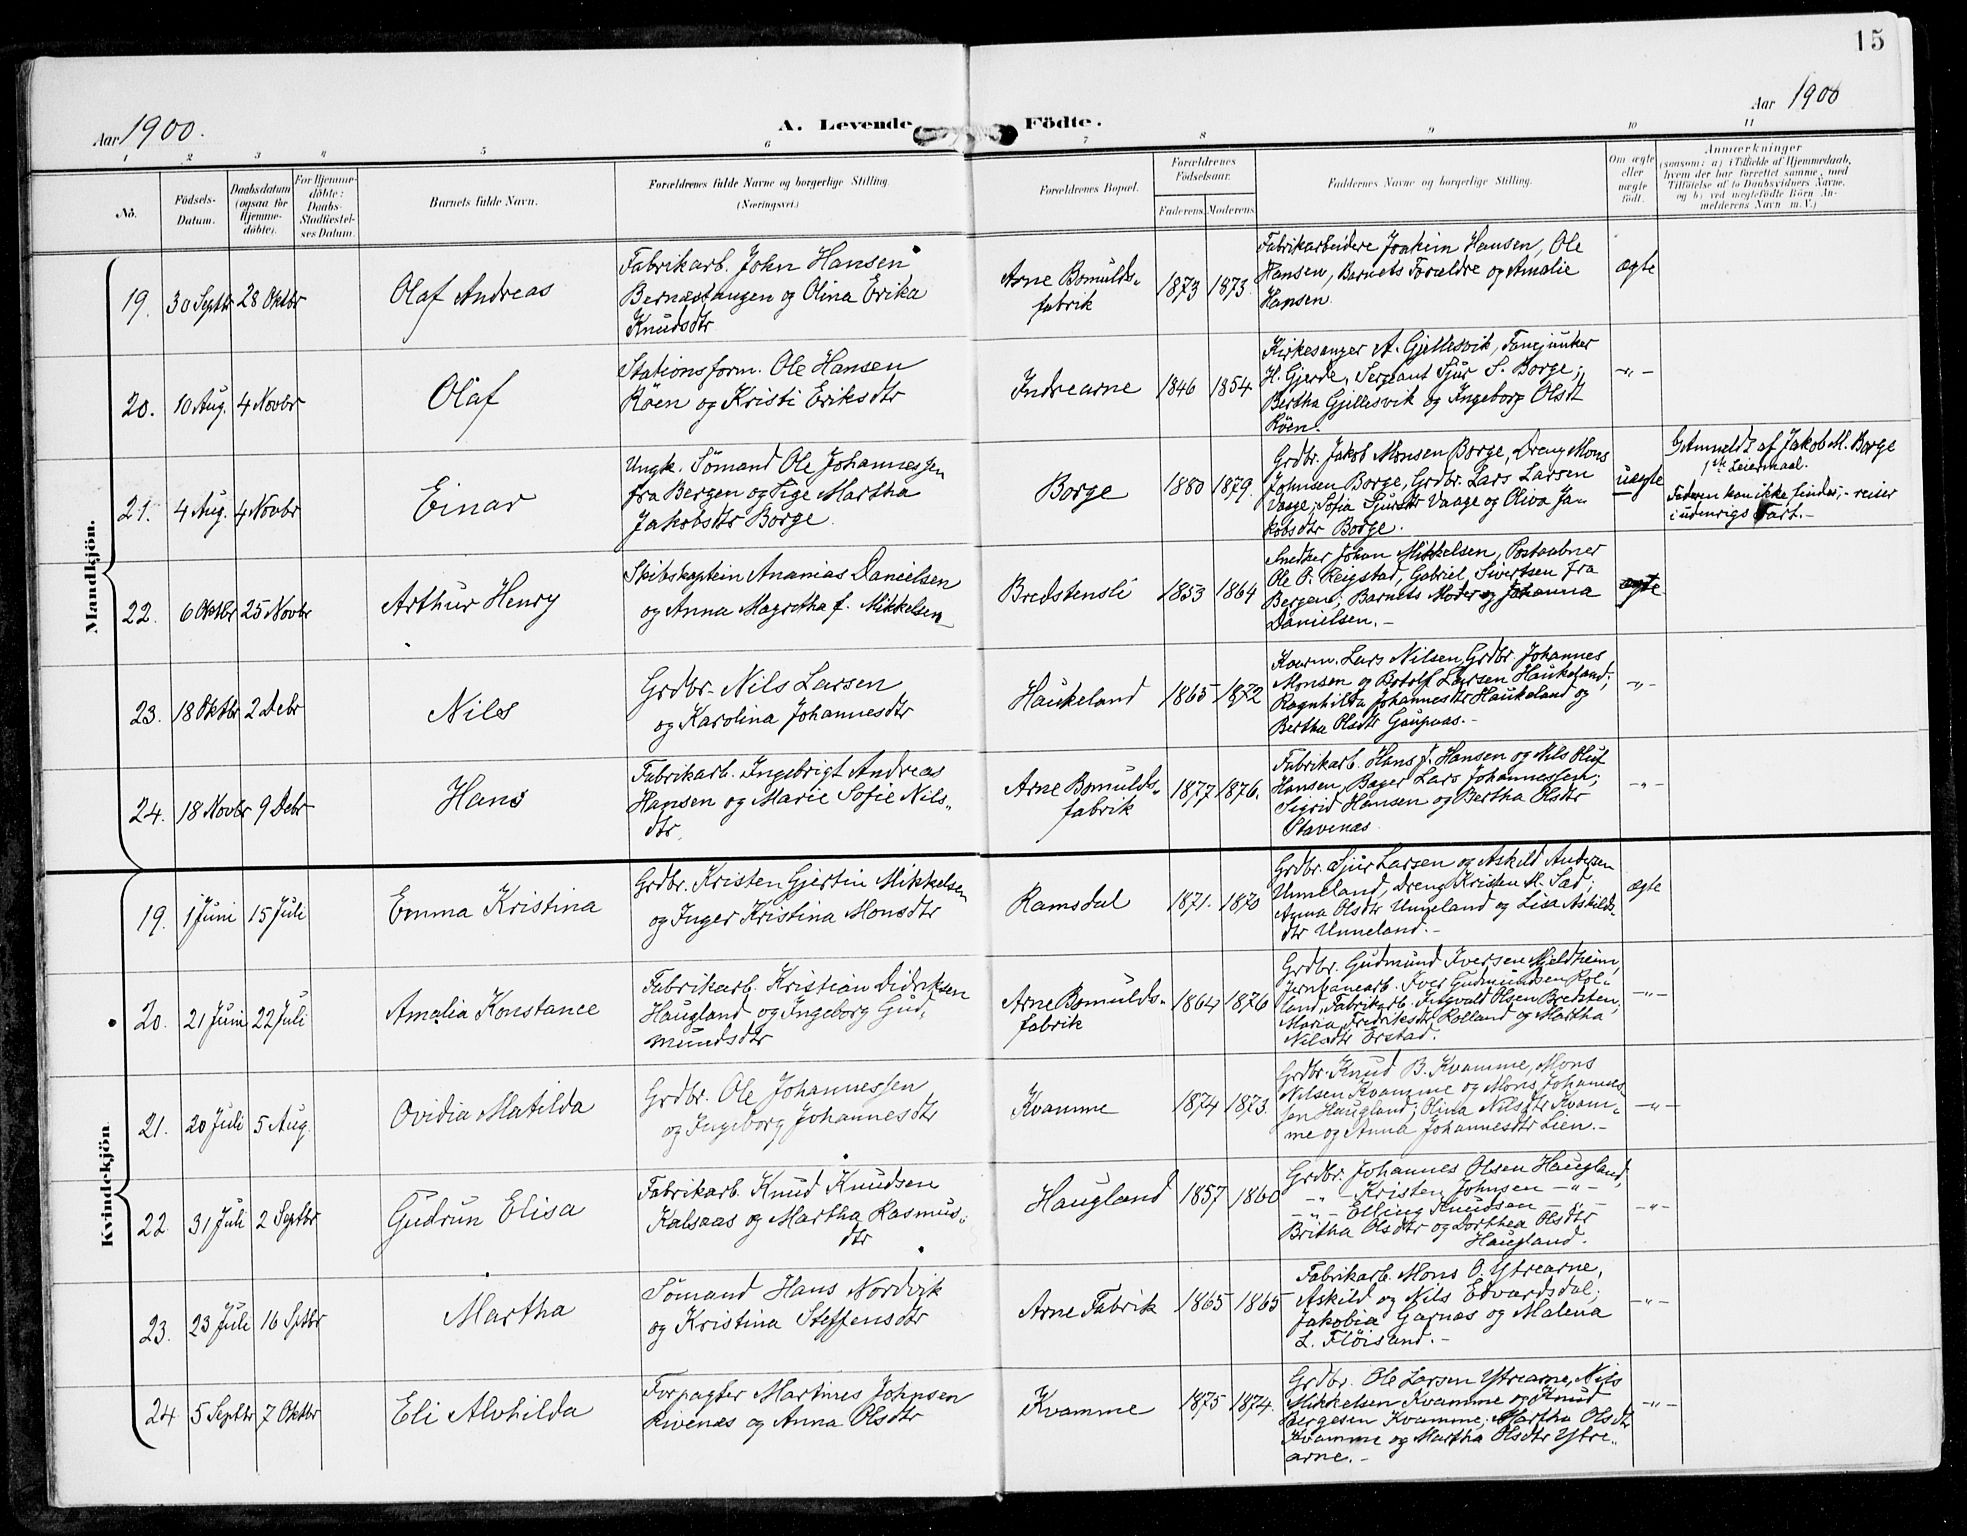 15
Aar 1900.
A. Levende Födte.
Aar 1900
1 2 3 4 5 6 7 8 9 10 11
No.
Födsels-
Datum.
Daabsdatum
(ogsaa for
Hjemme-
döbte).
For Hjemme-
döbte:
Daabs-
Stadfæstel-
ses Datum.
Barnets fulde Navn.
Forældrenes fulde Navne og borgerlige Stilling.
(Næringsvei.)
Forældrenes Bopæl.
Forældrenes
Födselsaar.
Faderens. Moderens.
Faddernes Navne og borgerlige Stilling.
Om ægte
eller
uægte
födt.
Anmærkninger
(saasom: a) i Tilfælde af Hjemmedaab,
hvem der har forrettet samme, med
Tilföielse af to Daabsvidners Navne,
og b) ved uægtefödte Börn An-
melderens Navn m. V.)
Mandkjön.
19. 30 Septbr 28 Oktbr
Olaf Andreas
Fabrikarb. John Hansen
Bernæstangen og Olina Erika
Knudsdtr
Arne Bomulds-
fabrik
1873 1873.
Fabrikarbeidere Joakim Hansen, Ole
Hansen, Barnets Forældre og Amalie
Hansen.
ægte
20. 10 Aug. 4 Novbr
Olaf
Stationsform. Ole Hansen
Röen og Kristi Eriksdtr
Indrearne
1846 1854
Kirkesanger A. Gjellesvik, Fanejunker
H. Gjerde, Sergeant Sjur S. Borge;
Bertha Gjellesvik og Ingeborg Olsdt
Röen.
-"-
21. 4 Aug. 4 Novbr
Einar
Ungk. Sömand Ole Johannessen
fra Bergen og Pige Martha
Jakobsdtr Borge.
Borge
1880 1879.
Grdbr. Jakob Monsen Borge, Dreng Mons
Johnsen Borge, Grdbr. Lars Larsen
Vaage; Sofia Sjursdtr Vaage og Oliva Ja-
kobsdtr Borge.
uægte
Anmeldt af Jakob M. Borge
1ste Leiermaal.
Faderen kan ikke findes; - reiser
i udenrigs Fart. -
22. 6 Oktbr 25 Novbr
Arthur Henry
Skibskaptein Ananias Danielsen
og Anna Magretha f. Mikkelsen
Bredstensli
1853 1864
Snedker Johan Mikkelsen, Postaabner
Ole O. Reigstad, Gabriel Sivertsen fra
Bergen; Barnets Moder og Johanna
Danielsen. -
ægte
23. 18 Oktbr 2 Debr
Nils
Grdbr. Nils Larsen
og Karolina Johannesdtr
Haukeland
1865 1872
Kaarm. Lars Nilsen, Grdbr Johannes
Monsen og Botolf Larsen Haukeland;
Ragnhilda Johannesdtr Haukeland og
Bertha Olsdtr Gaupaas. -
-"-
24. 18 Novbr 9 Debr
Hans
Fabrikarb. Ingebrigt Andreas
Hansen og Marie Sofie Nils-
dtr.
Arne Bomulds-
fabrik
1877 1876.
Fabrikarb. Hans J. Hansen og Nils Oluf
Hansen, Bager Lars Johannessen;
Sigrid Hansen og Bertha Olsdtr
Stavenæs
-"-
Kvindekjön
19. 1 Juni 15 Juli
Emma Kristina
Grdbr. Kristen Gjertin Mikkelsen
og Inger Kristina Monsdtr
Ramsdal
1871. 1870
Grdbr. Sjur Larsen og Askild Andersen
Unneland, Dreng Kristen M. Sæd;
Anna Olsdtr Unneland og Lisa Askilds-
dtr Unneland. -
ægte
20. 21 Juni 22 Juli
Amalia Konstance
Fabrikarb. Kristian Didriksen
Haugland og Ingeborg Gud-
mundsdtr
Arne Bomulds-
fabrik
1864 1876
Grdbr. Gudmund Iversen Mjeldheim,
Jernbanearb. Iver Gudmundsen Rol-
land, Fabrikarb. Ingvald Olsen Bredsten;
Maria Fredriksdtr Rolland og Martha
Nilsdtr Erstad.
-"-
21. 20 Juli 5 Aug.
Ovidia Matilda
Grdbr. Ole Johannessen
og Ingeborg Johannesdtr
Kvamme
1874 1873.
Grdbr. Knud B. Kvamme, Mons
Nilsen Kvamme og Mons Johannes-
sen Haugland; Olina Nilsdtr Kvam-
me og Anna Johannesdtr Lien. -
-"-
22. 31 Juli 2 Septbr
Gudrun Elisa
Fabrikarb. Knud Knudsen
Kalsaas og Martha Rasmus-
dtr
Haugland
1857 1860
Grdbr. Johannes Olsen Haugland,
-"- Kristen Johnsen -"-
-"- Elling Knudsen -"-
Britha Olsdtr og Dorthea Olsdtr
Haugland.
-"-
23. 23 Juli 16 Sptbr
Martha
Sömand Hans Nordvik
og Kristina Steffensdtr
Arne Fabrik
1865 1865
Fabrikarb. Mons O. Ytrearne,
Askild og Nils Edvardsdal;
Jakobia Garnæs og Malena
L. Flöisand. -
-"-
24 5 Septbr 7 Oktbr
Eli Alvhilda
Forpagter Martines Johnsen
Rivenæs og Anna Olsdtr
Kvamme
1875 1874.
Grdbr. Ole Larsen Ytrearne, Nils
Mikkelsen Kvamme og Knud
Bergesen Kvamme; Martha Olsdtr
Kvamme og Martha Olsdtr Ytre-
arne. -
-"-